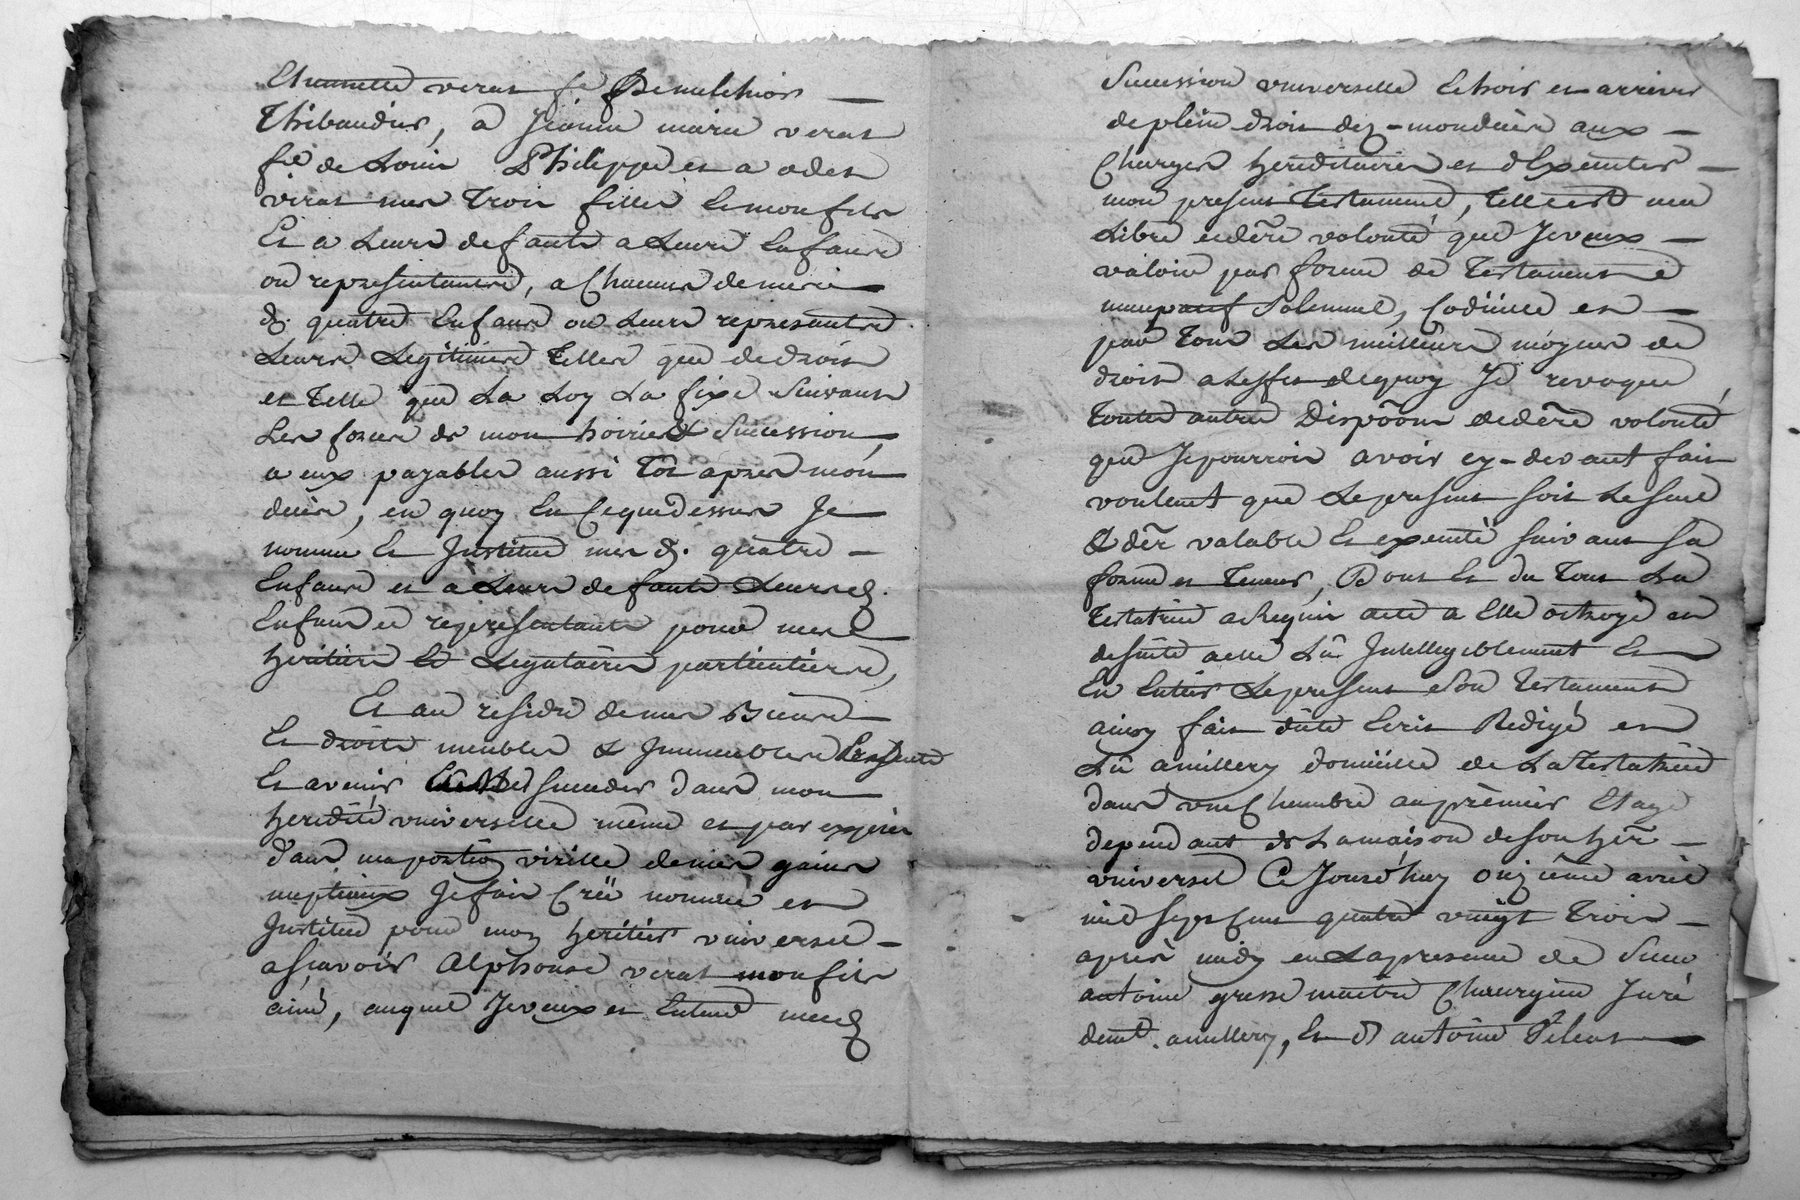 Etiennette verat fe de melchior
Thibaudier, a Jeanne marie verat
fe de Louis Philippe et a odet
verat mes trois filles & mon fils
Et a Leurs defauts a Leurs Enfants
ou representants, a Chacuns de mes
d. quatre Enfants ou Leurs representants
Leurs Legitimes telles que de droit
et telle que La Loy La fixe suivant
Les forces de mon hoirie & succession,
a eux payables aussi tôt après mon
décès, en quoy En ce que dessus Je
nomme Et Institue mes d. quatre
Enfants et a Leurs defauts Leurs d.
Enfants et representants pour mes
heritiers Et Legataires particuliers,
Et au residu de mes Biens
Et droits meubles & Immeubles presents
Et avenir succeder dans mon
heredité universelle même et par exprès
dans ma portion virille de mes gains
nuptiaux Je fais Créé nomme et
Institue pour mon heritier universel
a sçavoir Alphonse verat mon fils
ainé, auquel Je veux et Entend mad
Succession universelle Echoir et arriver
de plein droit dez-mondécès aux
Charges hereditaires et d'Executer
mon present Testament, telle est ma
Libre et dere volonté que Je veux
valoir par forme de Testament
nuncupatif Solemnel, Codicile et
par Tous Les meilleurs moyens de
droit a Leffet dequoy Je revoque
toutes autres Dispôons et dere volonté
que Je pourrois avoir cy-devant fait
voulent que Le present soit Le seul
& der valable Et executé suivant sa
forme et Teneur, Dont Et du Tout La
Testatrice a Requis acte a Elle octroyé et
de suite a elle Lû Intelligiblement Et
En Entier Le present & son Testament
ainsy fait dicté Ecrit Redigé et
Lû a millery domicille de La Testatrice
dans une Chambre au prèmier Etage
dependant de La maison de son her
universel Ce Jourd'huy onzième avril
mil sept Cent quatre vingt Trois
après midy en La presence de Sieur
antoine gresse maitre Chirurgien Juré
demt. a millery, Et Sr antoine Pelcat